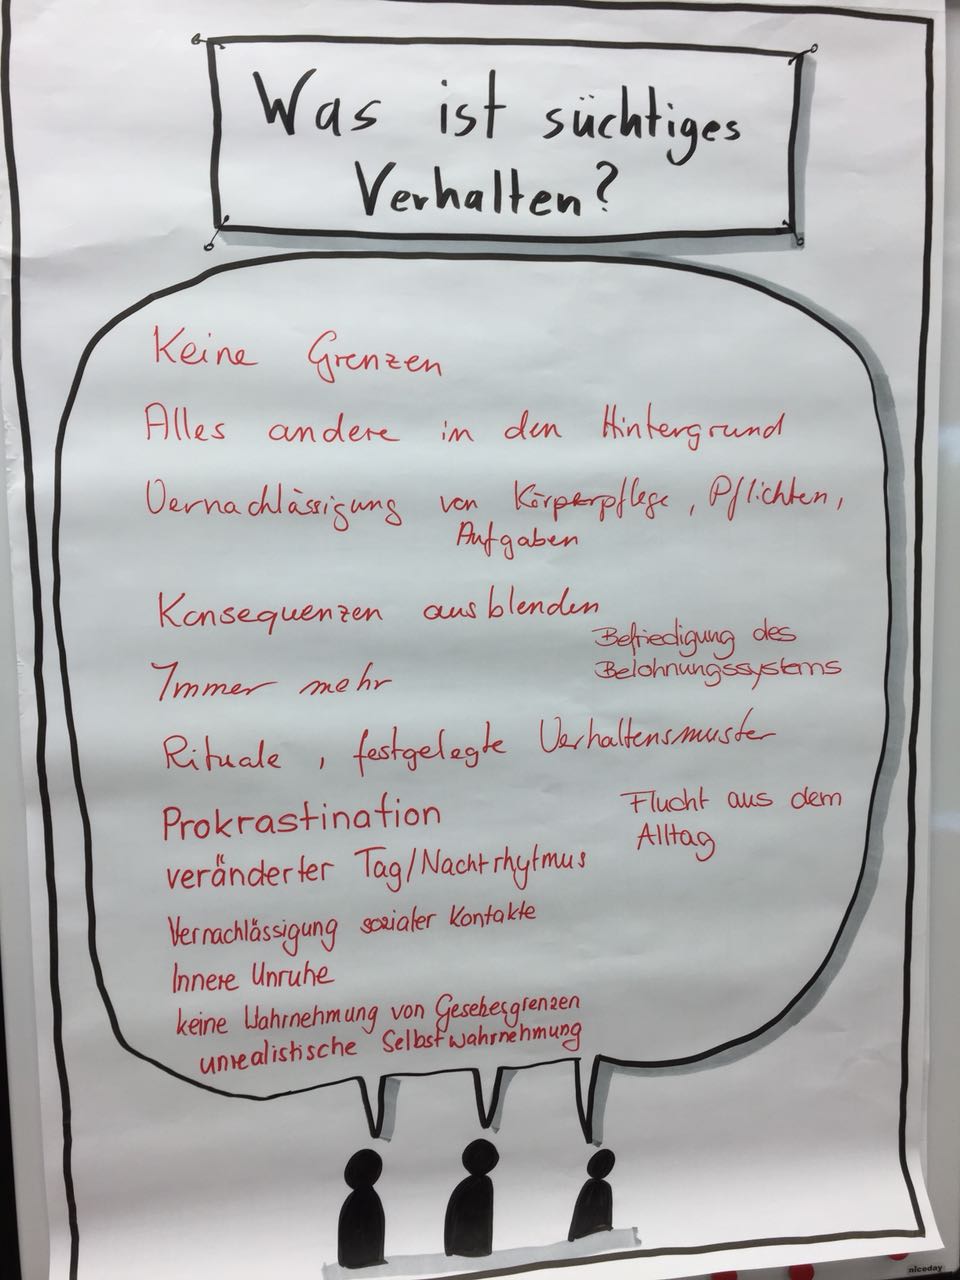 Was ist süchtiges
Verhalten?
Keine Grenzen
Alles andere in den Hintergrund
Vernachlässigung von Körperpflege, Pflichten,
Aufgaben
Konsequenzen ausblenden
Befriedigung des
Belohnungssystems
Immer mehr
Rituale, festgelegte Verhaltensmuster
Prokrastination
Flucht aus dem
Alltag
veränderter Tag/Nachtrhytmus
Vernachlässigung sozialer Kontakte
Innere Unruhe
keine Wahrnehmung von Gesetzesgrenzen
unrealistische Selbstwahrnehmung
niceday